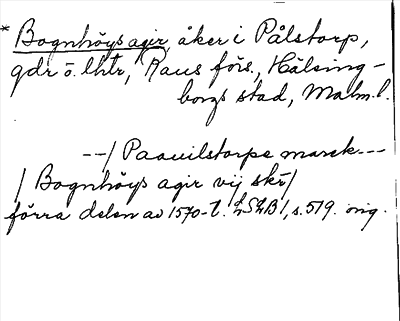 * Bognhöys agir, åker i Pålstorp,
gdr ö. lhtr, Raus förs., Hälsing-
borgs stad, Malm.l.
--/ Paauilstorpe marck---
/ Bognhöys agir vij skr/
förra delen av 1570-t. LSLB1, s. 519. orig.